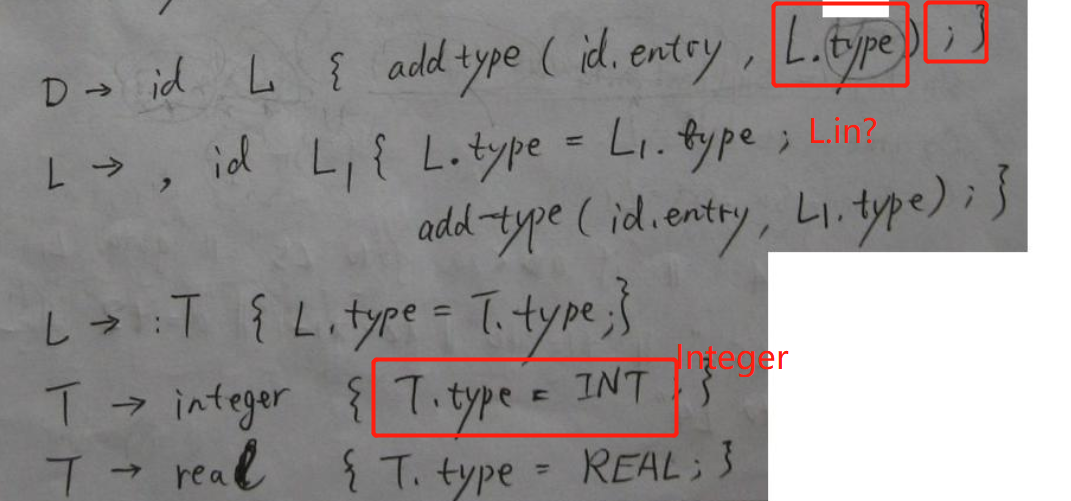 D → id L { addtype ( id.entry , L.type ) ; }
L → , id L₁ { L.type = L₁.type ; L.in?
add-type ( id.entry, L₁.type) ; }
L → :T { L.type = T.type;}
Integer
T → integer { T.type = INT ; }
T → real { T.type = REAL; }